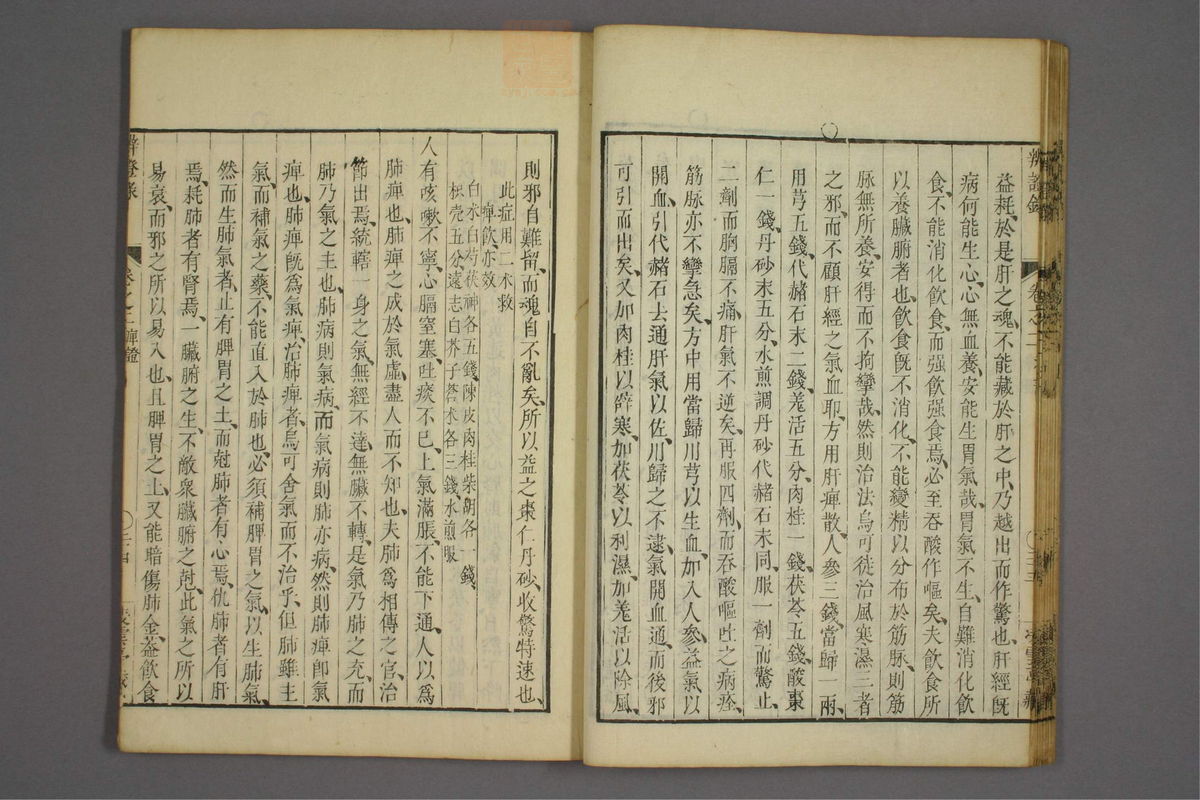 益耗於是肝之魂不能藏於肝之中乃越出而作驚也肝經旣
病何能生心心無血養安能生胃氣哉胃氣不生自難消化飲
食不能消化飲食而强飲强食焉必至吞酸作嘔矣夫飲食所
以養臟腑者也飲食旣不消化不能變精以分布於筋脉則筋
脉無所養安得而不拘攣哉然則治法烏可徒治風寒濕三者
之邪而不顧肝經之氣血耶方用肝痺散人參三錢當歸一兩
川芎五錢代赭石末二錢羌活五分肉桂一錢茯苓五錢酸棗
仁一錢丹砂末五分水煎調丹砂代赭石末同服一劑而驚止
二劑而胸膈不痛肝氣不逆矣再服四劑而吞酸嘔吐之病痊
筋脉亦不攣急矣方中用當歸川芎以生血加入人參益氣以
開血引代赭石去通肝氣以佐川歸之不逮氣開血通而後邪
可引而出矣又加肉桂以辟寒加茯苓以利濕加羌活以除風
辨證錄
則邪自難留而魂自不亂矣所以益之棗仁丹砂收驚特速也
此症用二朮救
痺飲亦效
白朮白芍茯神各五錢陳皮肉桂柴胡各一錢
枳壳五分遠志白芥子蒼朮各三錢水煎服
人有咳嗽不寧心膈窒塞吐痰不已上氣滿脹不能下通人以爲
肺痺也肺痺之成於氣虛盡人而不知也夫肺爲相傳之官治
節出焉統轄一身之氣無經不達無臟不轉是氣乃肺之充而
肺乃氣之主也肺病則氣病而氣病則肺亦病然則肺痺卽氣
痺也肺痺旣爲氣痺治肺痺者烏可舍氣而不治乎但肺雖主
氣而補氣之藥不能直入於肺也必須補脾胃之氣以生肺氣
然而生肺氣者止有脾胃之土而尅肺者有心焉仇肺者有肝
焉耗肺者有腎焉一臟腑之生不敵衆臟腑之尅此氣之所以
易衰而邪之所以易入也且脾胃之土又能暗傷肺金葢飲食
辨證錄
卷之二痺證